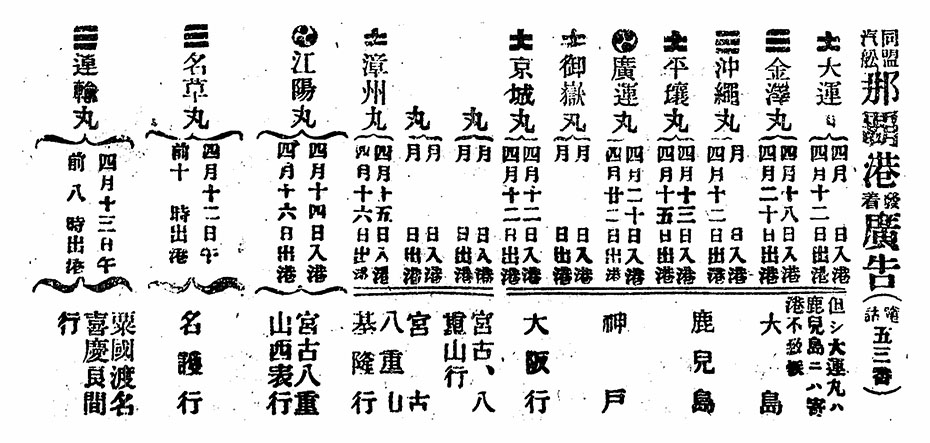 同盟
汽舩
那覇港發着廣告(電話五三番)
大運丸
四月 日入港
四月十二日出港
金澤丸
四月十八日入港
四月二十日出港
沖繩丸
月 日入港
四月十二日出港
平壤丸
四月十三日入港
四月十五日出港
廣運丸
四月二十日入港
四月廿二日出港
御嶽丸
月 日入港
月 日出港
京城丸
四月十二日入港
四月十二日出港
丸
月 日入港
月 日出港
丸
月 日入港
月 日出港
漳州丸
四月十五日入港
四月十六日出港
江陽丸
四月十四日入港
四月十六日出港
名草丸
四月十二日午
前十 時出港
運輸丸
四月十三日午
前八 時出港
但シ大運丸ハ
鹿兒島ニハ寄
港不致候
大島
鹿兒島
神戸
大阪行
宮古、八
重山行
宮古
八重山
基隆行
宮古八重
山西表行
名護行
粟國渡名
喜慶良間
行